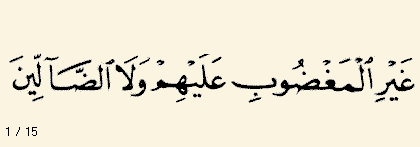 غَيْرِ ٱلْمَغْضُوبِ عَلَيْهِمْ وَلَا ٱلضَّآلِّينَ
1 / 15